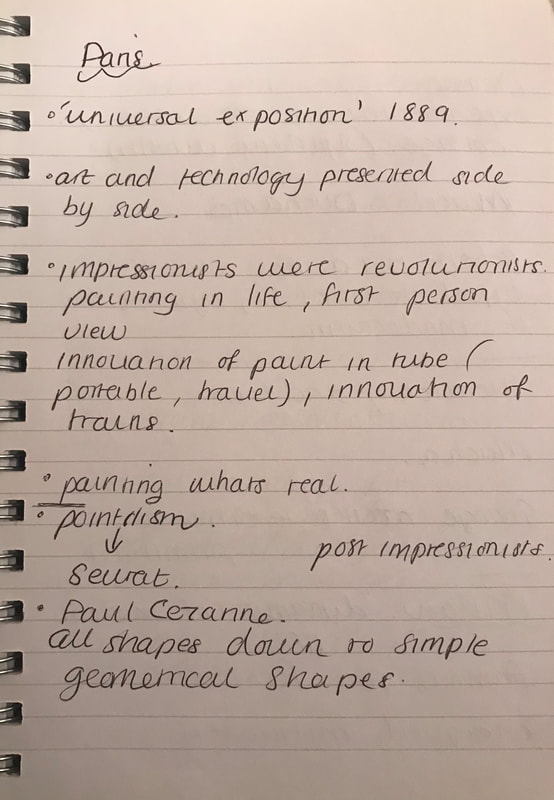 Paris
• 'universal exposition' 1889.
• art and technology presented side
by side.
• impressionists were revolutionists.
painting in life, first person
view
innovation of paint in tube (
portable, travel), innovation of
trains.
• painting whats real.
• pointilism.
↓
post impressionists.
Seurat.
• Paul Cezanne.
all shapes down to simple
geometrical shapes.